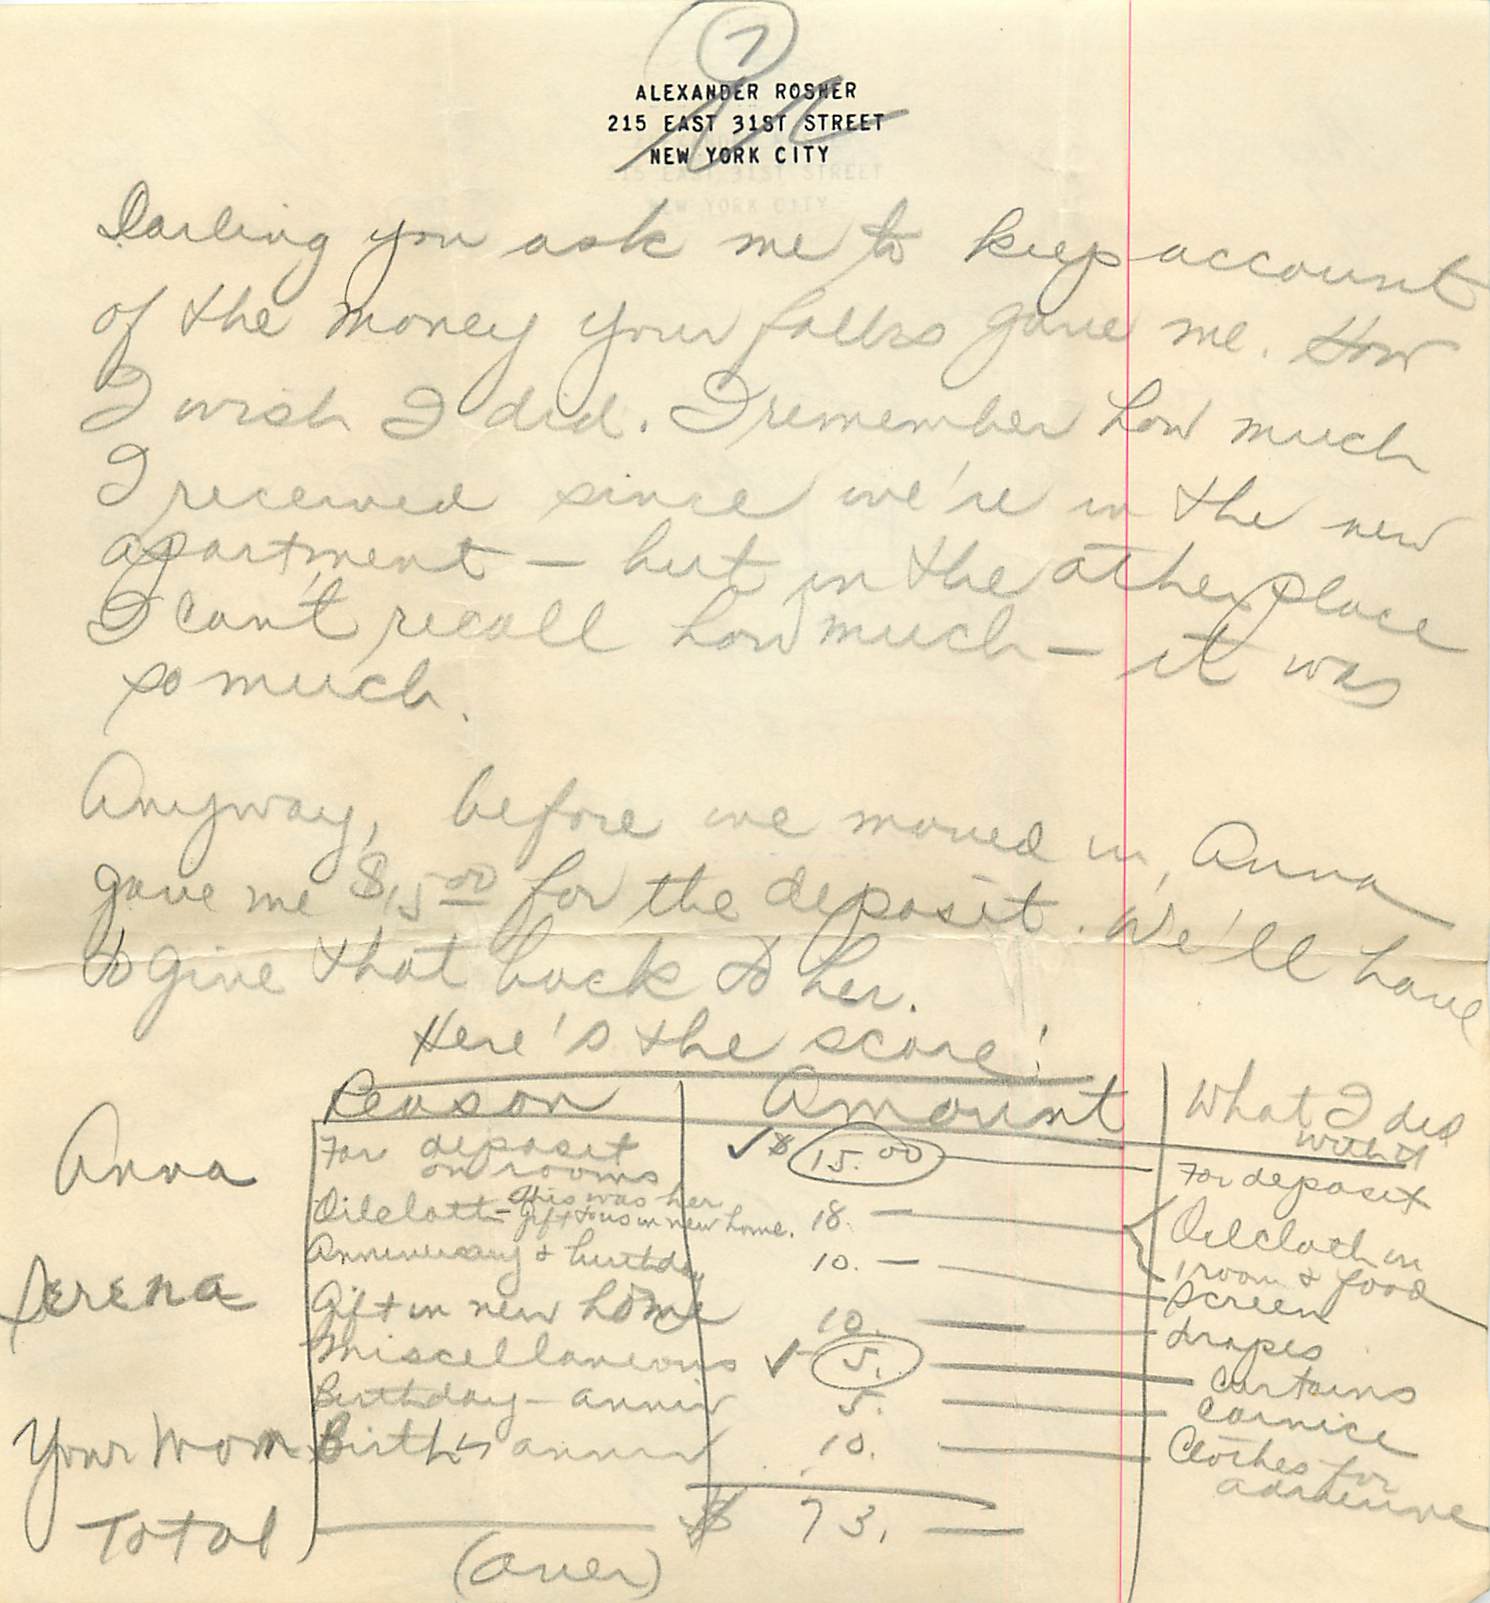 7
ALEXANDER ROSNER
215 EAST 31ST STREET
NEW YORK CITY
Darling you ask me to keep account
of the money your folks gave me. How
I wish I did. I remember how much
I received since we're in the new
apartment — but in the other place
I can't recall how much — it was
so much.
Anyway, before we moved in, Anna
gave me $15.00 for the deposit. We'll have
to give that back to her.
Here's the score!
Reason Amount What I did with it
Anna For deposit on rooms ✓ $ 15.00 — For deposit
Oilcloth - this was her gift to us in new home. 18. — Oilcloth in 1 room & food
Anniversary & birthday 10. — Screen
Serena Gift in new home 10. — drapes
Miscellaneous ✓ 5. — Curtains
Birthday - anniv 5. — Cornice
Your Mom Birth. & anniv 10. — Clothes for Adrienne
Total $ 73. —
(over)